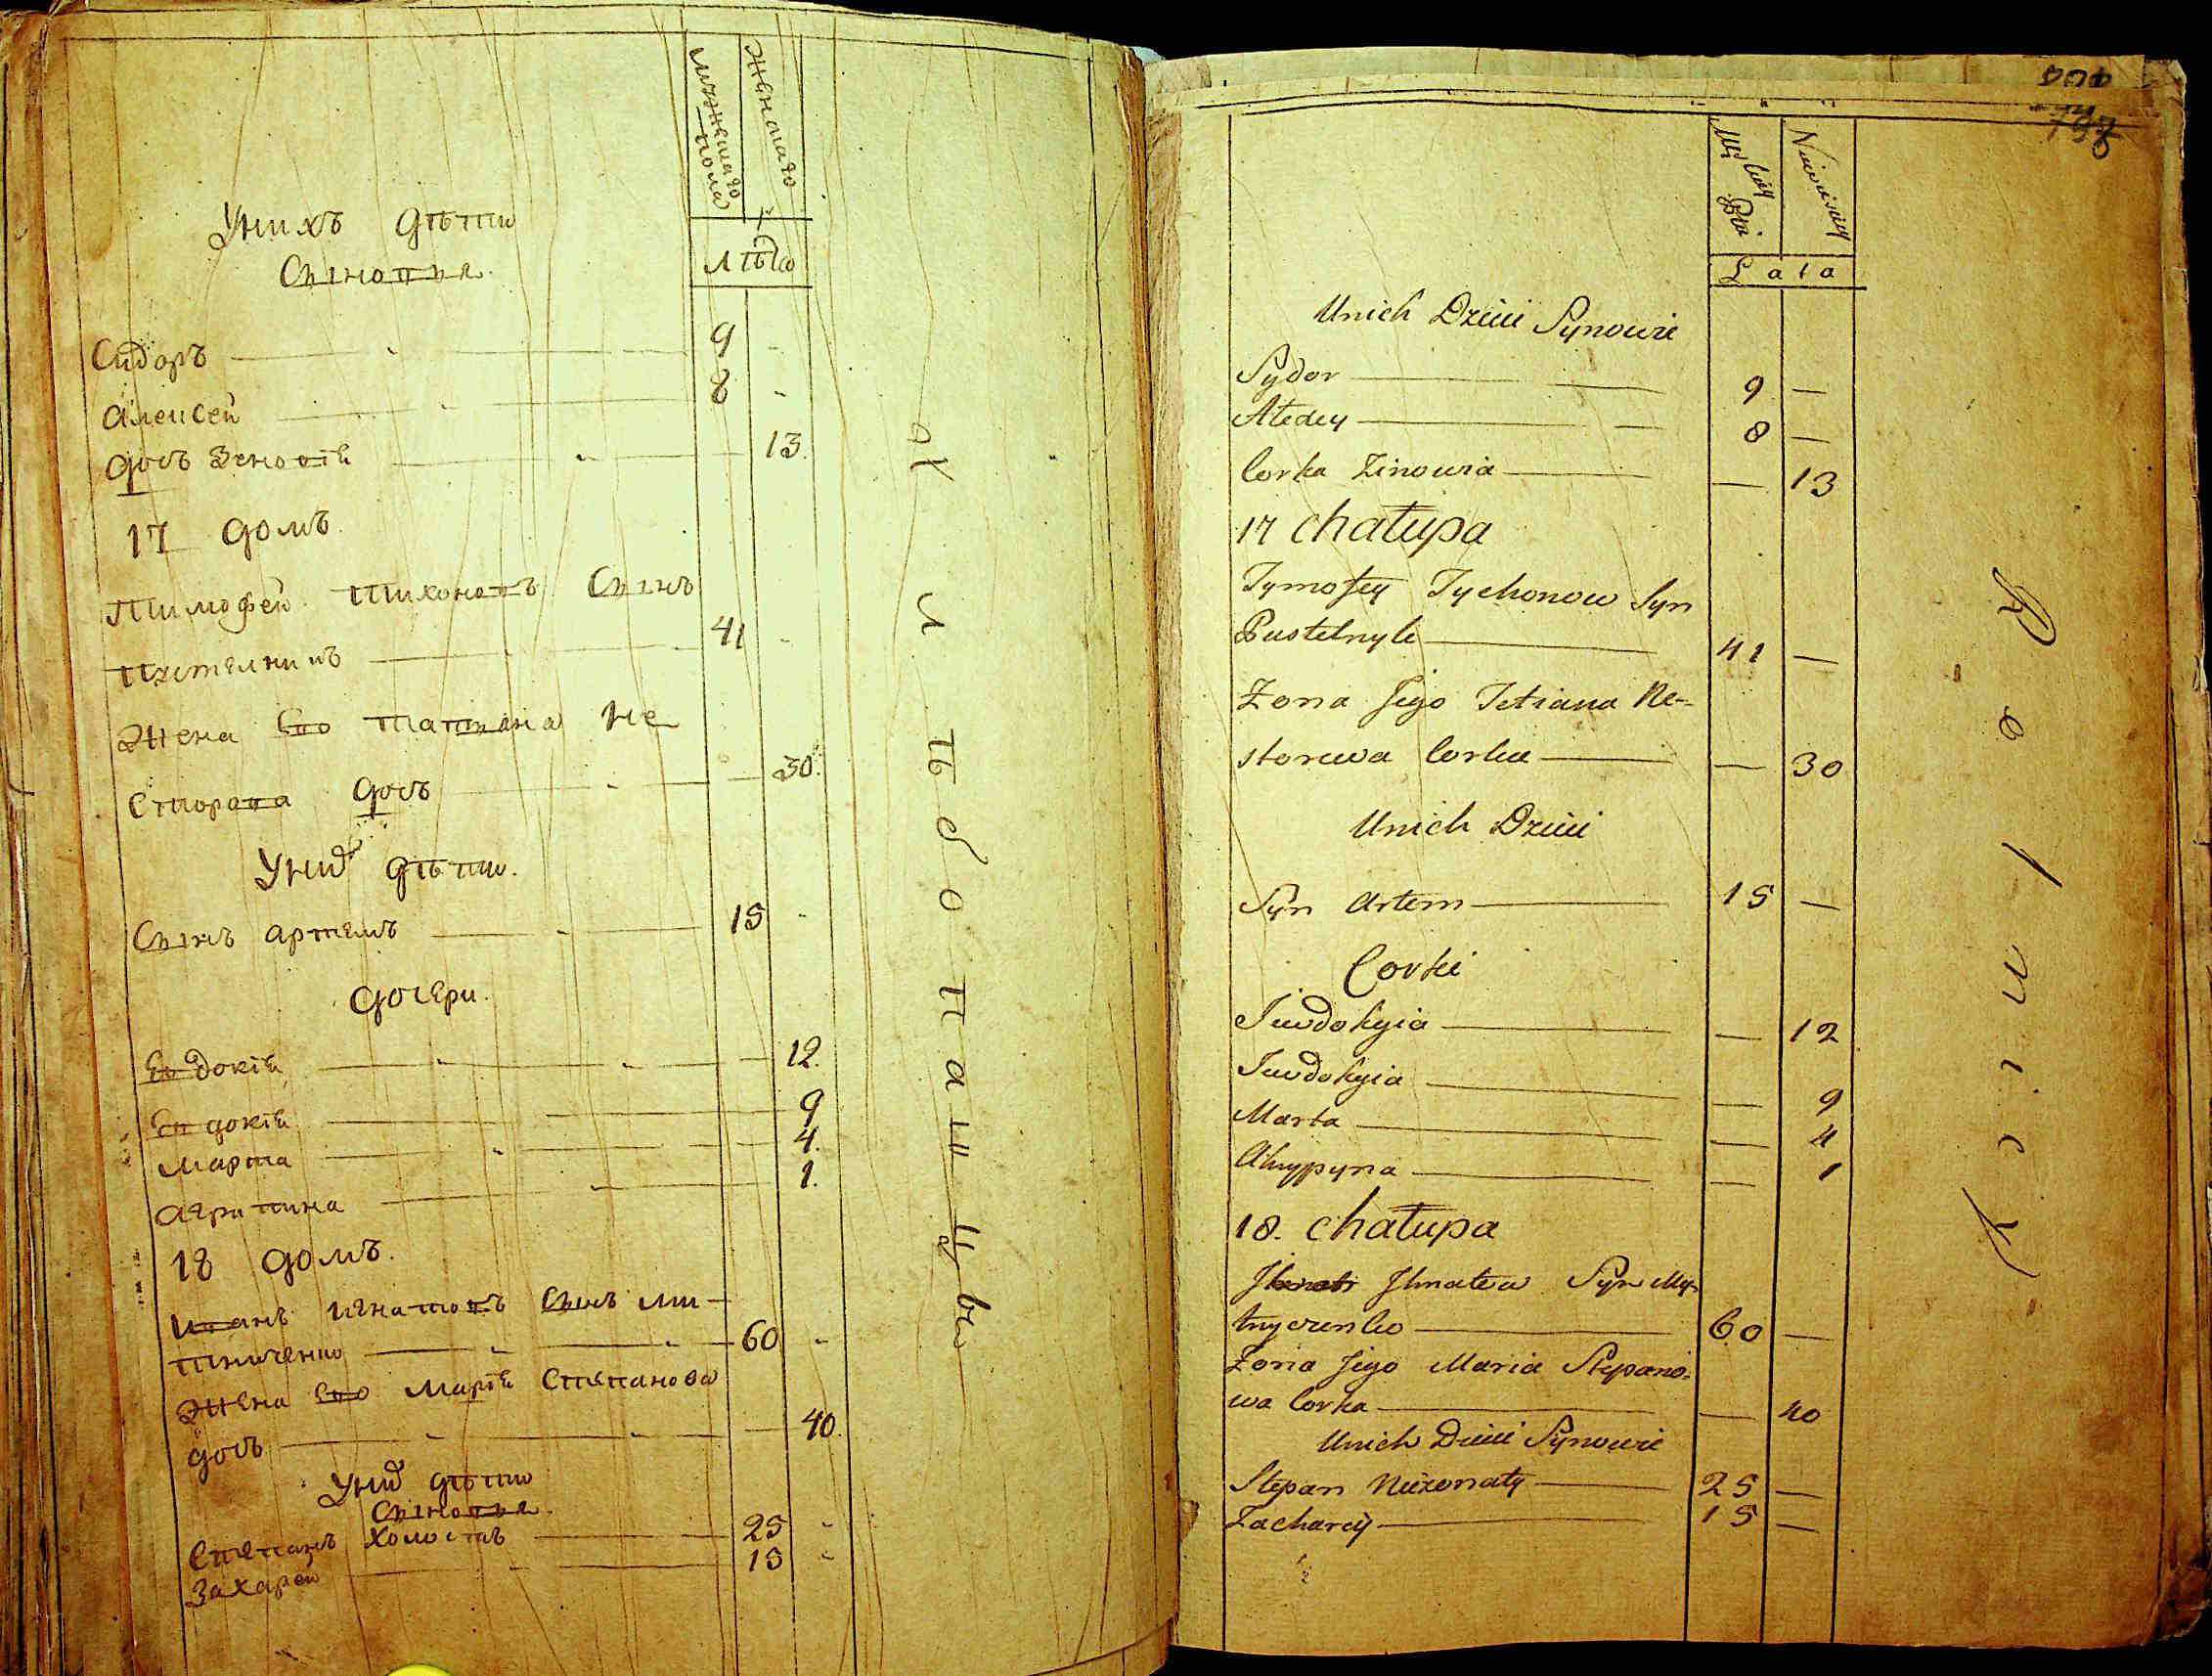 мужескаго пола
женскаго
лѣта
Унихъ дѣти
Сыновья.
Сидоръ 9 -
Алексей 8 -
дочь Зеновія 13.
17 домъ.
Тимофей Тихоновъ Сынъ
Пустелникъ 41 -
Жена Его татиана Не
сторова дочь — 30.
Уних дѣти.
Сынъ артемъ 15 -
дочери.
Евдокія — 12.
Евдокія 9
Марта 4.
Агрипина 1.
18 домъ.
Иванъ Игнатовъ Сынъ ми-
тниченко 60 -
Жена Его Марія Степанова
дочь — 40.
Уних дѣти
Сыновья.
Степанъ Холостъ 25 -
Захарей 15 -
Płci
Lata
Unich Dzieci Synowie
Sydor 9 —
Corka Zinowia — 13
17 chałupa
Tymofey Tychonow Syn
Pustelnyk 41 —
Zona Jego Tetiana Ne-
storowa Corka — 30
Unich Dzieci
Syn Artem 15 —
Corki
Juwdokyia — 12
Juwdokyia — 9
Marta — 4
Ahrypyna — 1
18. chałupa
Ihnatow Syn My-
tnyczenko 60 —
Zona Jego Maria Stepano-
wa Corka — 40
Unich Dzieci Synowie
Stepan Nieżonaty 25 —
Zacharij 15 —